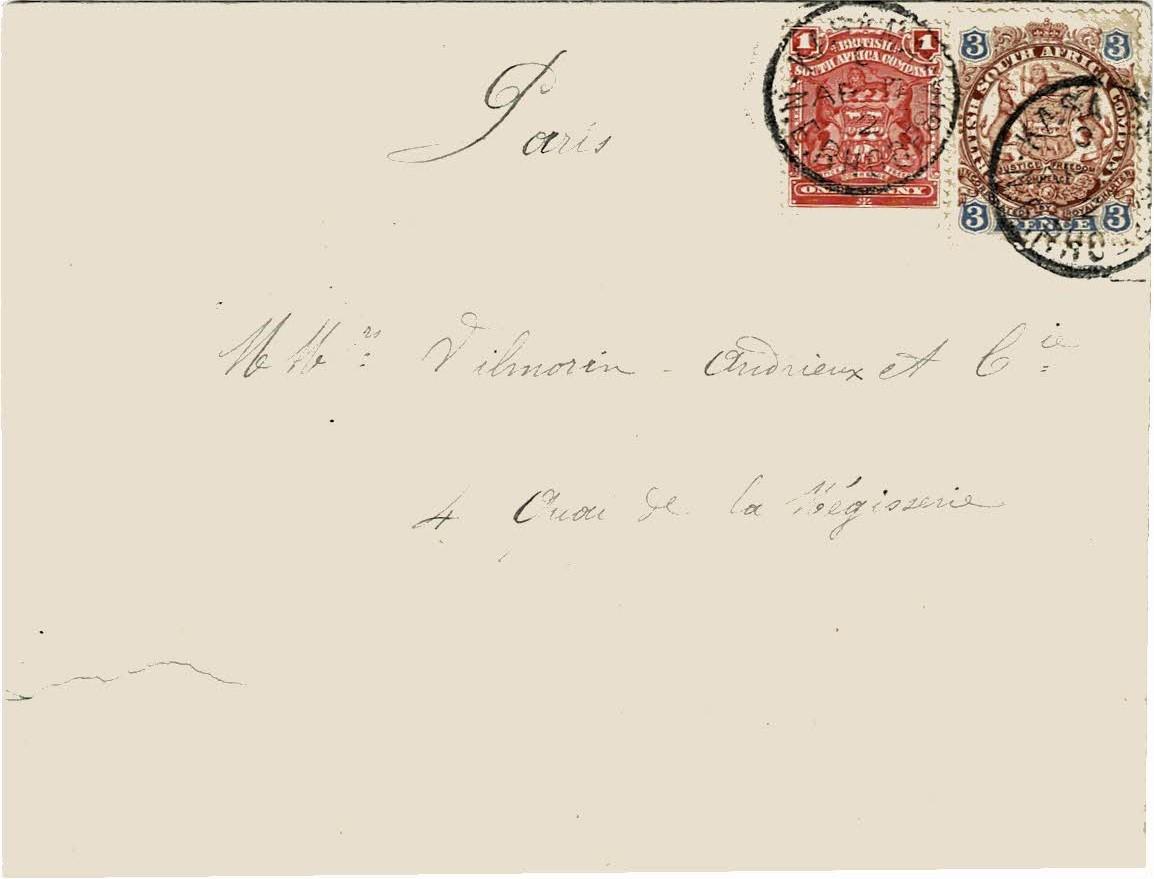 Paris
M Mrs: Vilmorin - Andrieux et Cie
4 Quai de la Mégisserie
1 1
BRITISH
SOUTH AFRICA COMPANY
ONE PENNY
3 3
BRITISH SOUTH AFRICA COMPANY
JUSTICE FREEDOM
COMMERCE
3 PENCE 3
AP
RHODESIA